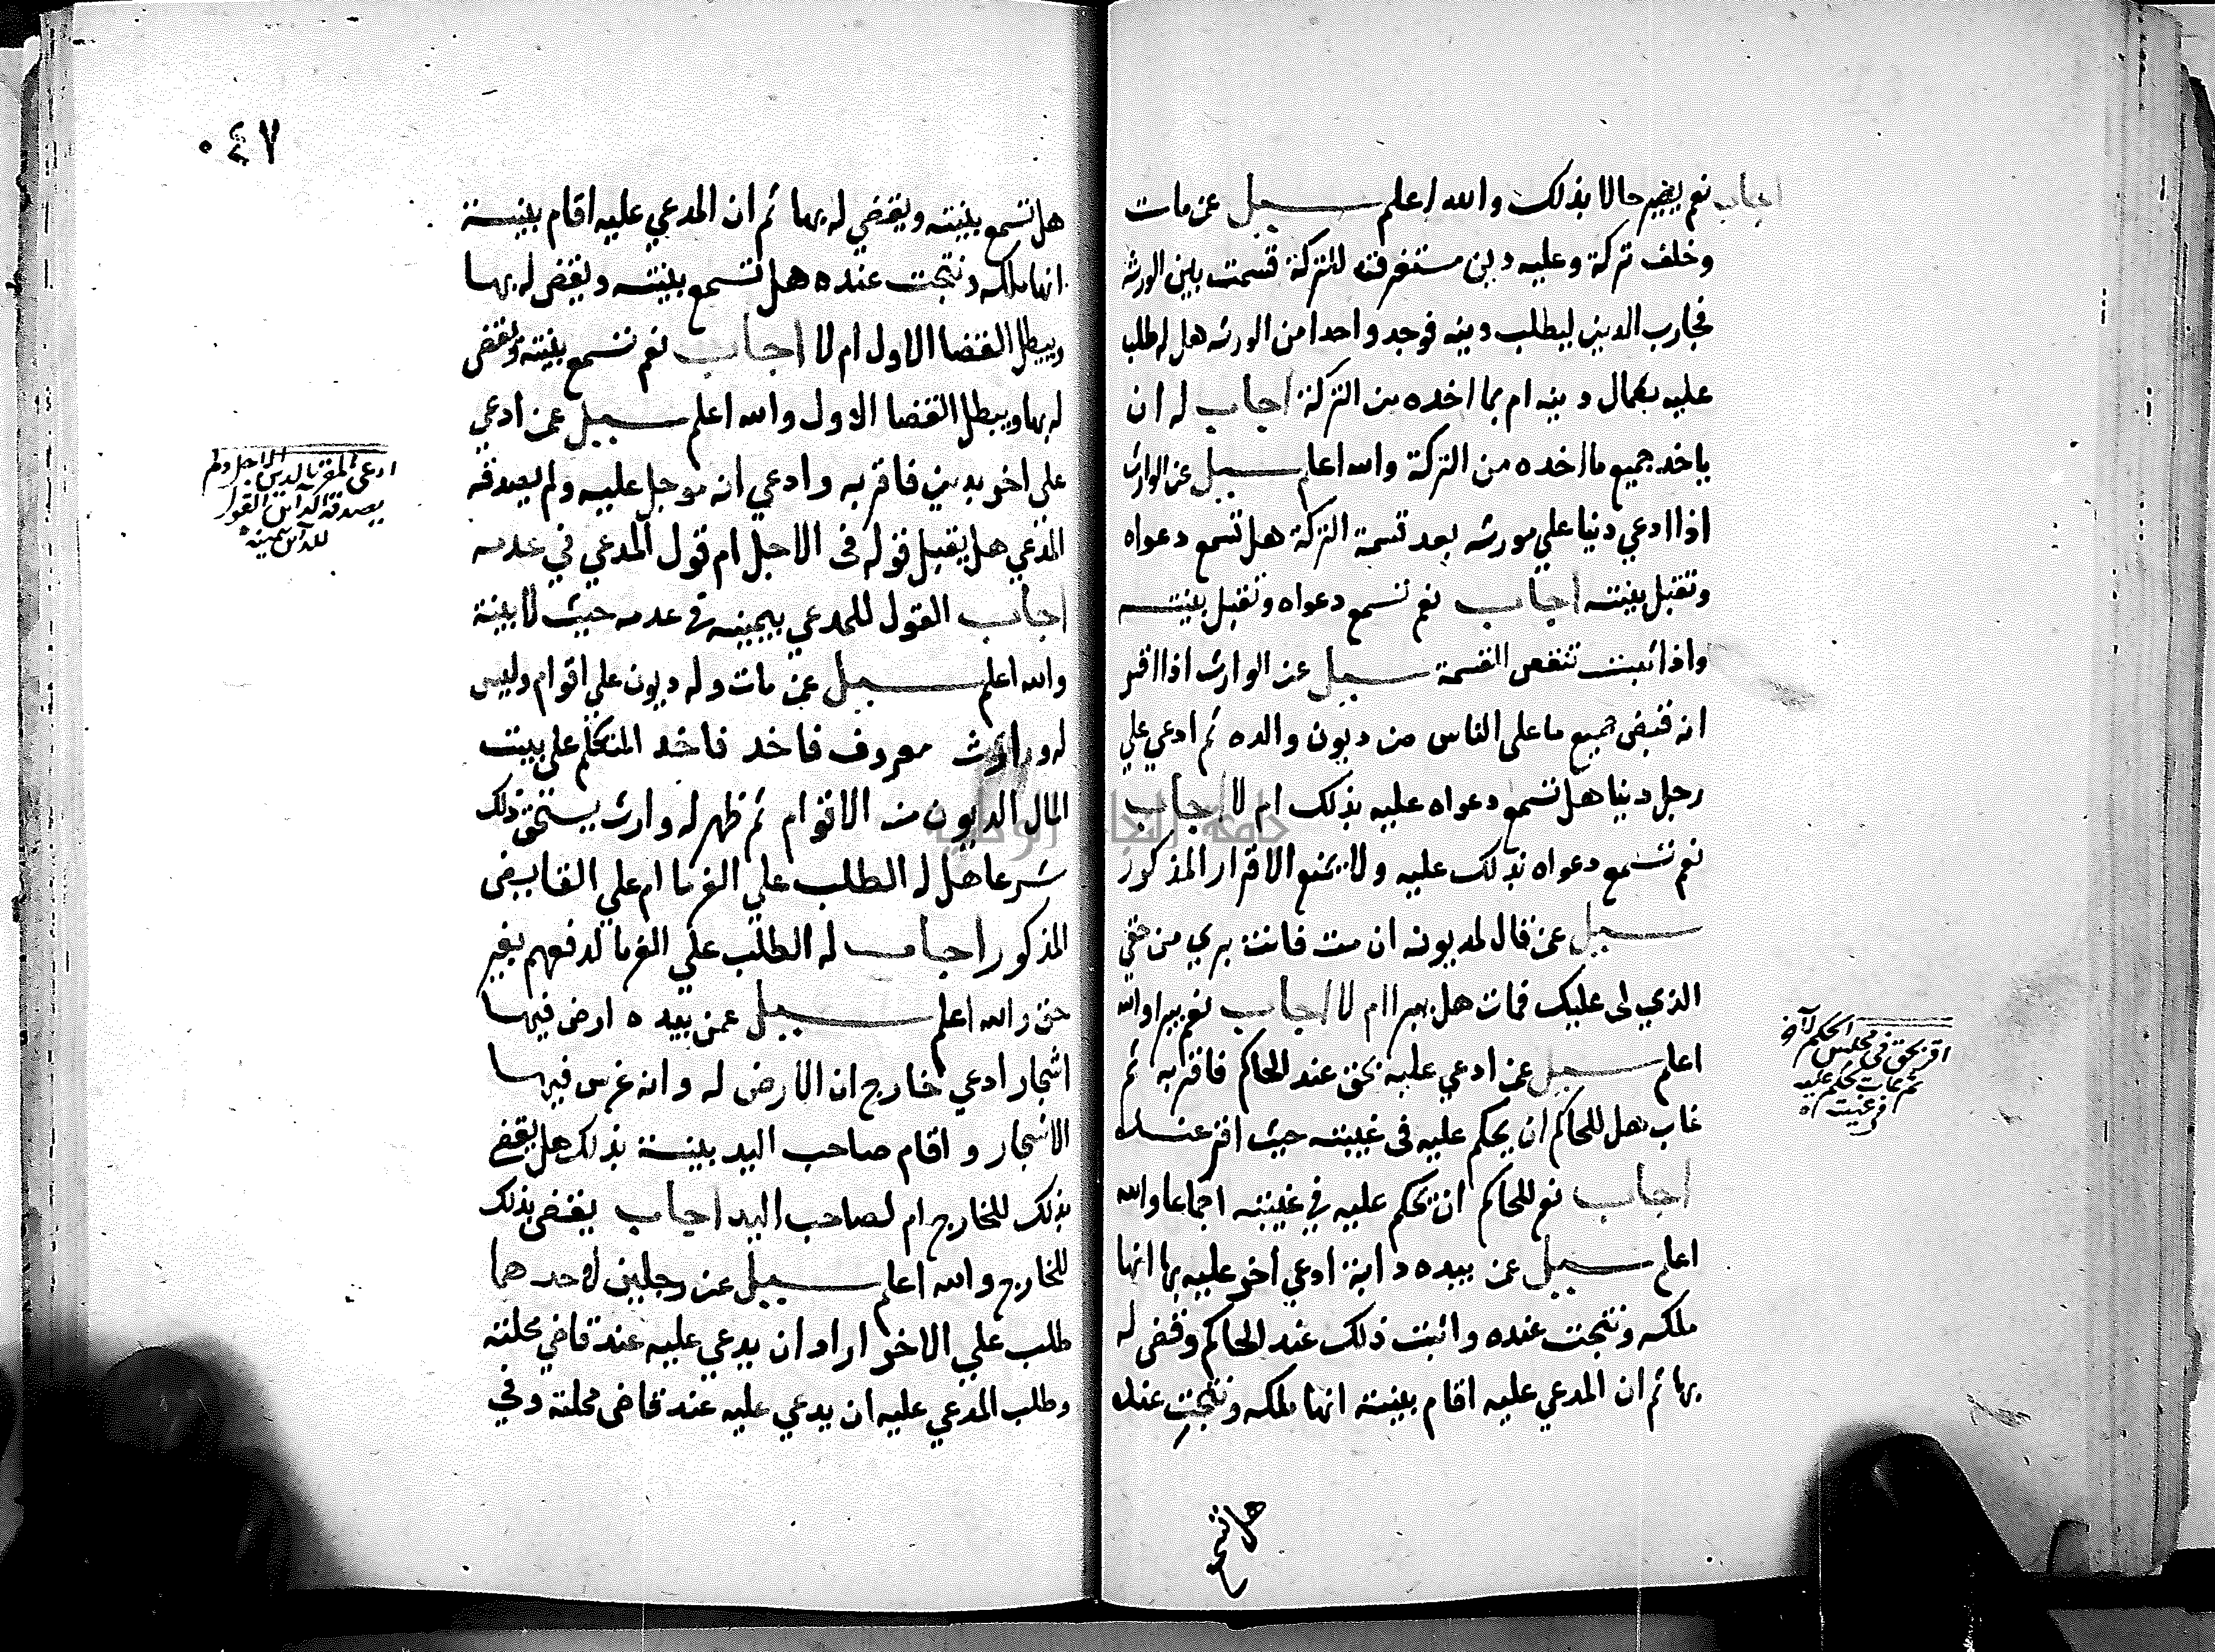 اجاب نعم يصير حالا بذلك والله اعلم سيل عن مات
وخلف تركة وعليه دين مستغرقة للتركة قسمت بين الورثة
فجا رب الدين ليطلب دينه فوجد واحدا من الورثه هل له طلب
عليه بكمال دينه ام بما اخده من التركة اجاب له ان
ياخد جميع ما اخده من التركة والله اعلم سيل عن الوارث
اذا ادعي دينا علي مورثه بعد قسمة التركة هل تسمع دعواه
وتقبل بينته اجاب نعم تسمع دعواه وتقبل بينته
واذا اثبت تنقض القسمة سيل عن الوارث اذا اقر
انه قبض جميع ما على الناس من ديون والده ثم ادعي علي
رجل دينا هل تسمع دعواه عليه بذلك ام لا اجاب
نعم تسمع دعواه بذلك عليه ولا يمنع الاقرار المذكور
سيل عن قال لمديونه ان مت فانت بري من حقي
الذي لى عليك فمات هل يبرا ام لا اجاب نعم يبرا والله
اعلم سيل عن ادعي عليه بحق عند الحاكم فاقر به ثم
غاب هل للحاكم ان يحكم عليه فى غيبته حيث اقر عنده
اجاب نعم للحاكم ان يحكم عليه في غيبته اجماعا والله
اعلم سيل عن بيده دابة ادعي اخر عليه بها انها
ملكه ونتجت عنده واثبت ذلك عند الحاكم وقضى له
بها ثم ان المدعي عليه اقام بينة انها ملكه ونتجت عنده
هل تسمع
اقر بحق فى مجلس الحكم لآخر
ثم غاب يحكم عليه
في غيبته اه
٠٤٧
هل تسمع بينته ويقضي له بها ثم ان المدعي عليه اقام بينة
انها ملكه ونتجت عنده هل تسمع بينته ويقضى له بها
ويبطل القضا الاول ام لا اجاب نعم تسمع بينته ويقضى
له بها ويبطل القضا الاول والله اعلم سيل عمن ادعي
على اخر بدين فاقر به وادعي انه موجل عليه ولم يصدقه
المدعي هل يقبل قوله فى الاجل ام قول المدعي في عدمه
اجاب القول للمدعي بيمينه في عدمه حيث لا بينة
والله اعلم سيل عمن مات وله ديون علي اقوام وليس
له وارث معروف فاخد فاخد المتكلم على بيت
المال الديون من الاقوام ثم ظهر له وارث يستحق ذلك
شرعا هل له الطلب علي الغرما ام علي القابض
المذكور اجاب له الطلب علي الغرما لدفعهم بغير
حق والله اعلم سيل عمن بيده ارض فيها
اشجار ادعي خارج ان الارض له وانه غرس فيها
الاشجار واقام صاحب اليد بينة بذلك هل يقضي
بذلك للخارج ام لصاحب اليد اجاب يقضى بذلك
للخارج والله اعلم سيل عن رجلين لاحدهما
طلب علي الاخر اراد ان يدعي عليه عند قاضي محلته
وطلب المدعي عليه ان يدعي عليه عند قاضى محلته وفي
ادعى المقر بالدين الاجل ولم
يصدقه الداين القول
للداين بيمينه